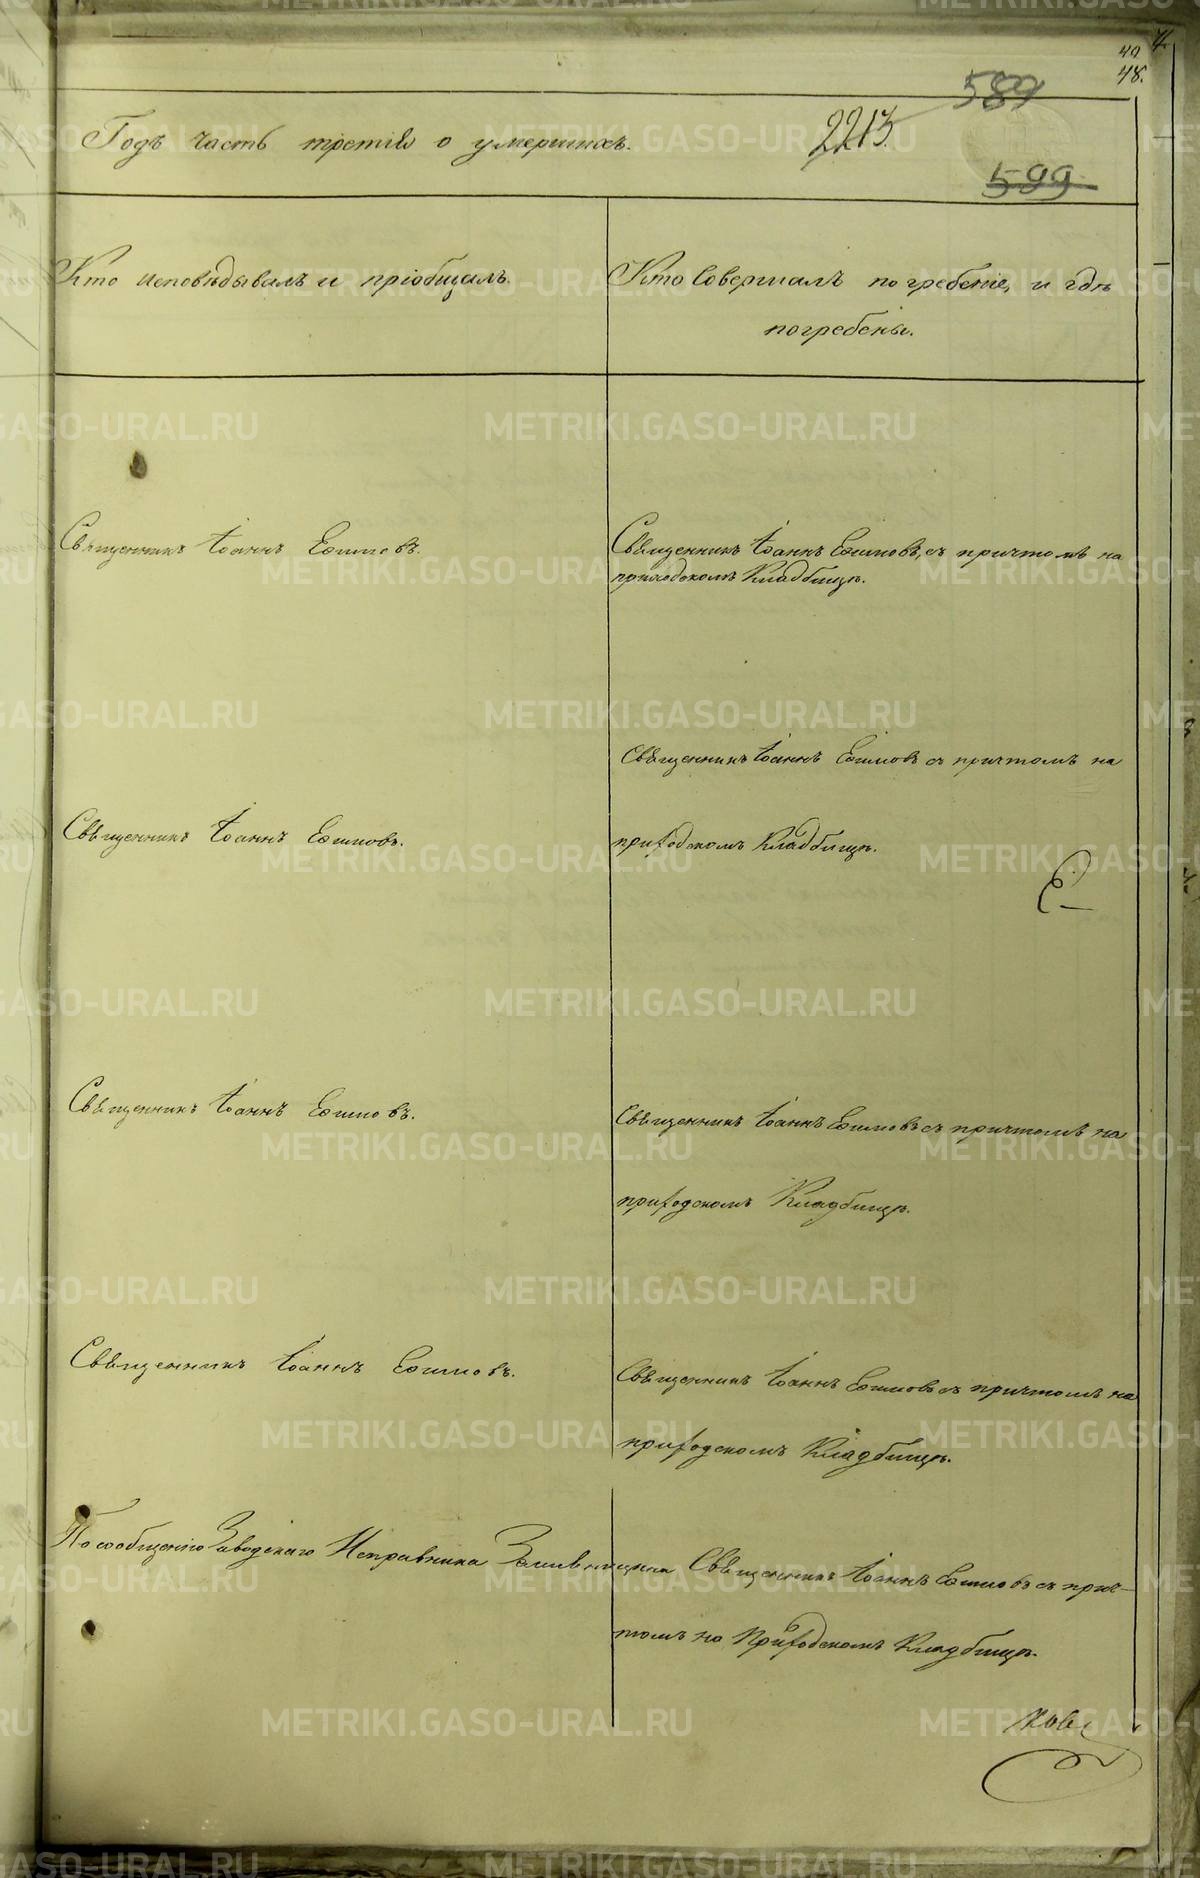 49
48.
589
2213.
Годъ часть третія о умершихъ.
599
Кто исповѣдывалъ и пріобщалъ.
Кто совершалъ погребеніе, и гдѣ
погребены.
Священникъ Іоаннъ Ефимовъ.
Священникъ Іоаннъ Ефимовъ, съ причтомъ на
приходскомъ Кладбищѣ.
Священникъ Іоаннъ Ефимовъ съ причтомъ на
Священникъ Іоаннъ Ефимовъ.
приходскомъ Кладбищѣ.
Е
Священникъ Іоаннъ Ефимовъ.
Священникъ Іоаннъ Ефимовъ съ причтомъ на
приходскомъ Кладбищѣ.
Священникъ Іоаннъ Ефимовъ.
Священникъ Іоаннъ Ефимовъ съ причтомъ на
приходскомъ Кладбищѣ.
По сообщенію Заводскаго Исправника
Священникъ Іоаннъ Ефимовъ съ прич-
томъ на Приходскомъ Кладбищѣ.
METRIKI.GASO-URAL.RU